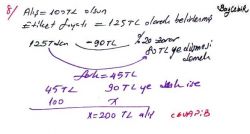 8/ Alış = 100 TL olsun
Etiket fiyatı = 125 TL olarak belirlenmiş
125 TL den - 90 TL % 20 zarar
80 TL ye düşmesi
demek
fark = 45 TL
45 TL 90 TL ye ise
100 x
x = 200 TL alış CEVAP: B